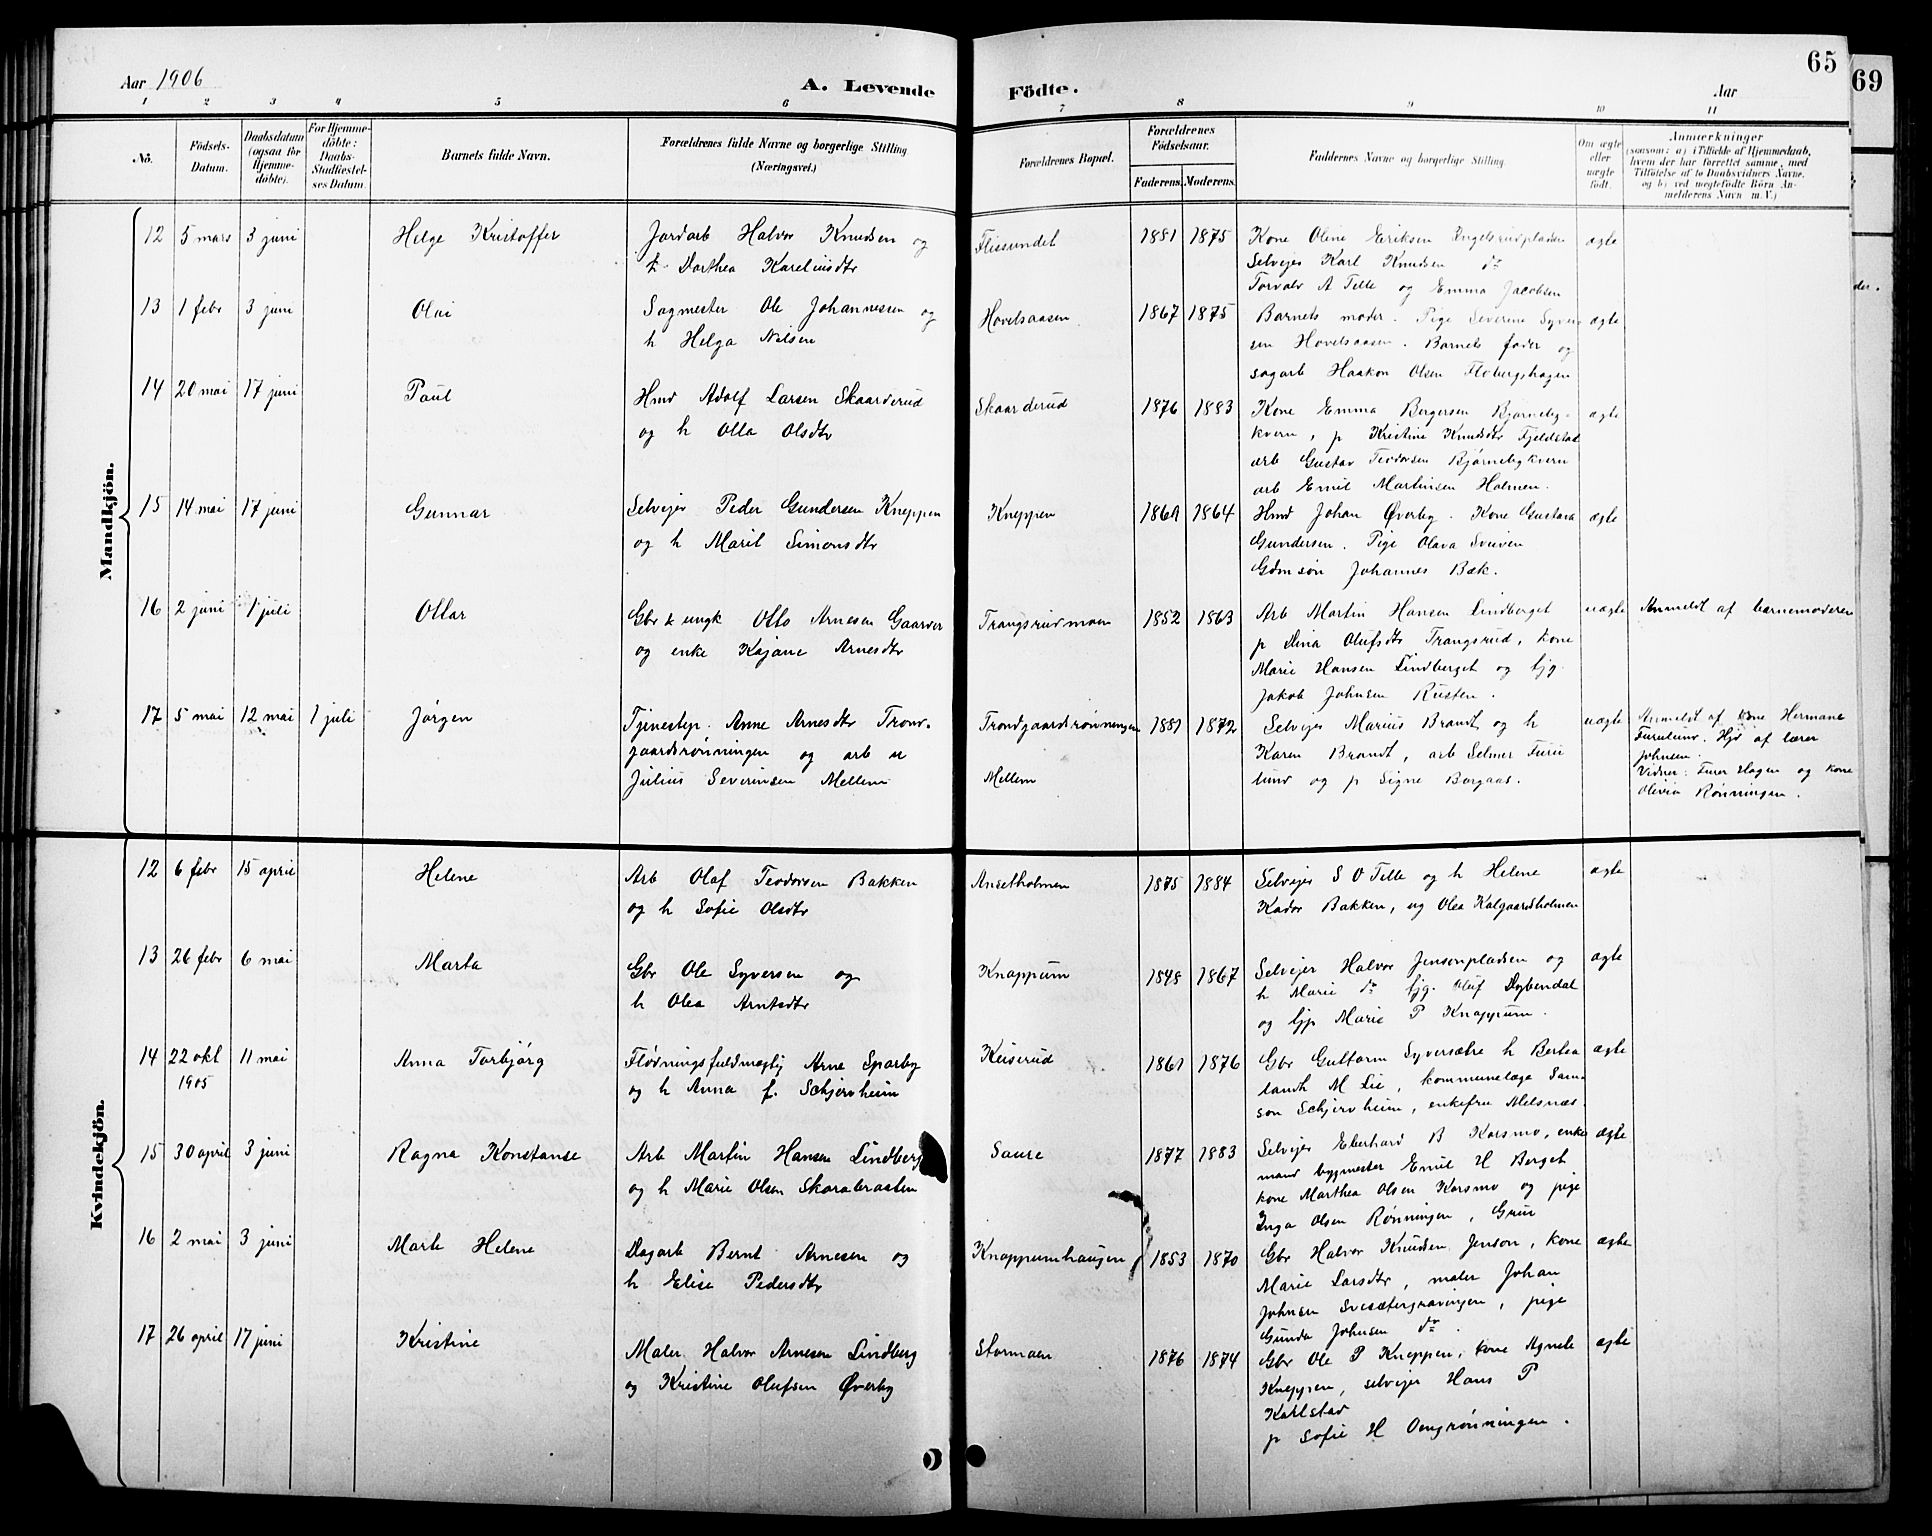 Aar 1906
A. Levende
Födte.
Aar
65
69
1 2 3 4 5 6 7 8 9 10 11
Nö.
Födsels-
Datum.
Daabsdatum
(ogsaa for
Hjemme-
döbte).
For Hjemme-
döbte:
Daabs-
Stadfæstel-
ses Datum.
Barnets fulde Navn.
Forældrenes fulde Navne og borgerlige Stilling
(Næringsvei.)
Forældrenes Bopæl.
Forældrenes
Födselsaar.
Faderens. Moderens.
Faddernes Navne og borgerlig Stilling.
Om ægte
eller
uægte
født.
Anmærkninger
(saasom: a) i Tilfælde af Hjemmedaab,
hvem der har forrettet samme, med
Tilföielse af to Daabsvidners Navne,
og b) ved uægtefödte Börn An-
melderens Navn m. V.)
Mandkjön.
12 5 mars 3 juni Helge Kristoffer
Jordarb Halvor Knudsen og
h. Dorthea Kareliusdtr
Flissundet 1881 1875
Kone Oline Eriksen Engelsrudpladsen
Selvejer Karl Knudsen do
Torvald A Telle og Emma Jacobsen
ægte
13 1 febr 3 juni Olai
Sagmester Ole Johannesen og
h Helga Nilsen
Hovelsaasen 1867 1875
Barnets moder. Pige Severine Syver-
sen Hovelsaasen. Barnets fader og
sagarb Haakon Olsen Flobergshagen
ægte
14 20 mai 17 juni Paul
Hmd Adolf Larsen Skaarderud
og h Olla Olsdtr
Skaarderud 1876 1883
Kone Emma Bergersen Bjørneby-
kvern, p Kristine Knudsdtr Fjeldstad
arb Gustav Teodorsen Bjørnebykvern
arb Emil Martinsen Holmen.
ægte
15 14 mai 17 juni Gunnar
Selvejer Peder Gundersen Kneppen
og h Marit Simonsdtr
Kneppen 1861 1864
Hmd Johan Øverby. Kone Gustava
Gundersen. Pige Olava Sveiven
Gdmsøn Johannes Bæk.
ægte
16 2 juni 1 juli Ottar
Gbr & ungk Otto Arnesen Gaarder
og enke Kajane Arnesdtr
Trangsrudmoen 1852 1863
Arb Martin Hansen Lindberget
p Dina Olufsdtr Trangsrud, kone
Marie Hansen Lindberget og ljg.
Jakob Johnsen Rusten.
uægte
Anmeldt af barnemoderen
17 5 mai 12 mai 1 juli Jørgen
Tjenestep. Anne Arnesdtr Trond-
gaardsrønningen og arb u
Julius Severinsen Mellem
Trondgaardsrønningen 1881 1872
Mellem
Selvejer Marius Brandt og h
Karen Brandt, arb Selmer Furu
lund og p Signe Borgaas.
uægte
Anmeldt af kone Hermane
Furulund. Hjd af lærer
Johnsen
Vidner: Furer Hagen og kone
Olivia Rønningen.
Kvindekjön.
12 6 febr 15 april Helene
Arb Olaf Teodorsen Bakken
og h Sofie Olsdtr
Ansetholmen 1875 1884
Selvejer S O Telle og h Helene
Kador Bakken, ug Olea Kolgaardsholmen
ægte
13 26 febr 6 mai Marta
Gbr Ole Syversen og
h Olea Arntsdtr
Knappum 1848 1867
Selvejer Halvor Jensonpladsen og
h Marie do ljg. Oluf Dybendal
og ljp Marie P Knappum.
ægte
14 22 okt 11 mai Anna Torbjørg
1905
Flødningsfuldmægtig Arne Sparby
og h Anna f. Schjervheim
Keiserud 1861 1876
Gbr Guttorm Syversætre h Bertea
landh M Lie, kommunelæge Sam-
son Schjervheim, enkefru Melsnæs.
ægte
15 30 april 3 juni Ragna Konstanse
Arb Martin Hansen Lindberg
og h Marie Olsen Skarabraaten
Saure 1877 1883
Selvejer Eberhard B Korsmo, enke
mand bygmester Emil H Berget
kone Marthea Olsen Korsmo og pige
Inga Olsen Rønningen, Grue
ægte
16 2 mai 3 juni Marte Helene
Dagarb Bernt Arnesen og
h Elise Pedersdtr
Knappumhaugen 1853 1870
Gbr Halvor Knudsen Jenson, kone
Marie Larsdtr, maler Johan
Johnsen Svesætergravingen, pige
Gunda Johnsen do.
ægte
17 26 april 17 juni Kristine
Maler Halvor Arnesen Lindberg
og Kristine Olufsen Øverby
Stormoen 1876 1874
Gbr Ole P Kneppen, kone Agnete
Kneppen, selvejer Hans P
Karlstad
p Sofie H Omgrønningen.
ægte